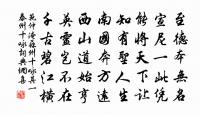 至德本無名
宣尼一此評
能將天下讓
知有聖人生
南國奔方遠
西山道始亨
英靈豈不在
千古碧江橫
范仲淹蘇州十詠其一